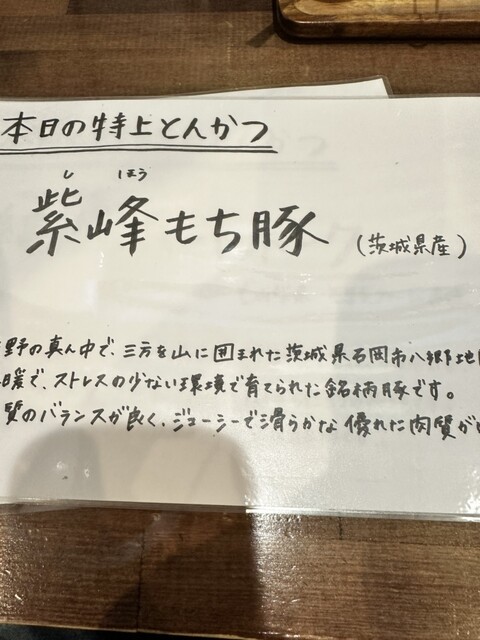 本日の特上とんかつ
し ほう
紫峰もち豚 (茨城県産)
野の真ん中で、三方を山に囲まれた茨城県石岡市八郷地
暖で、ストレスの少ない環境で育てられた銘柄豚です。
質のバランスが良く、ジューシーで滑らかな優れた肉質が